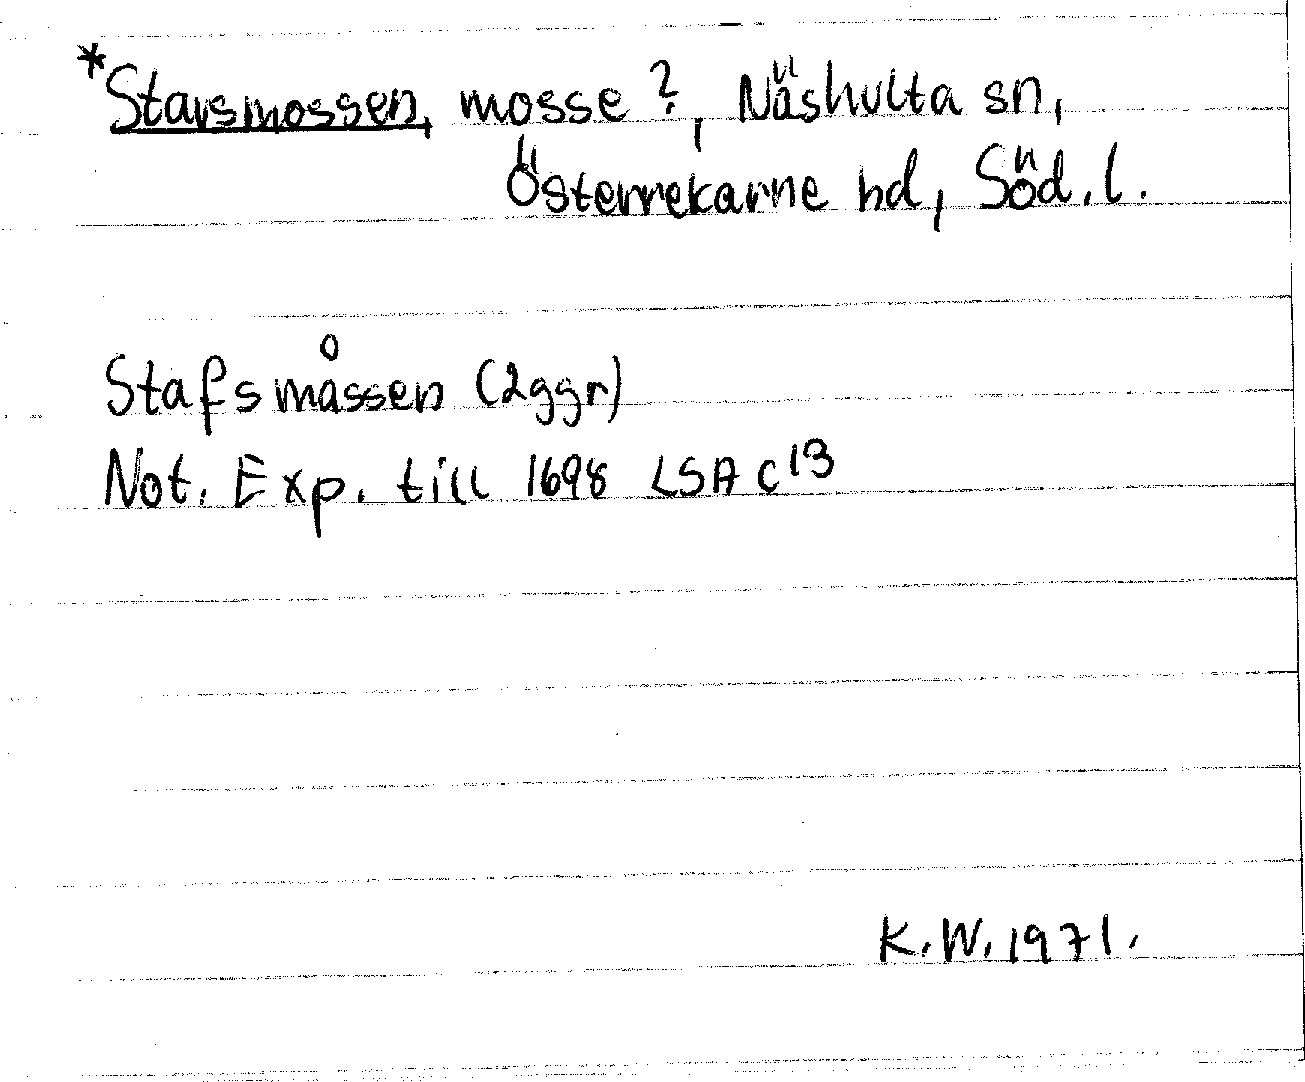 *Stavsmossen, mosse?, Näshulta sn,
Österrekarne hd, Söd. l.
Stafsmåssen (2ggr)
Not. Exp. till 1698 LSA C13
K.W. 1971.